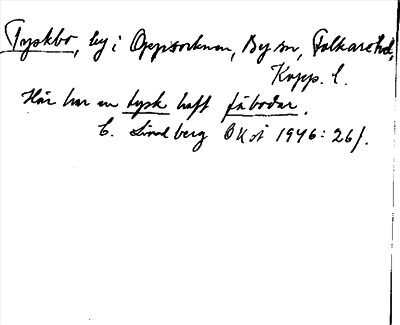 Tyskbo, by i Oppsocknen, By sn, Folkare hd,
Kopp. l.
Här har en tysk haft fäbodar.
C. Lindberg OKOÄ 1946: 26f.